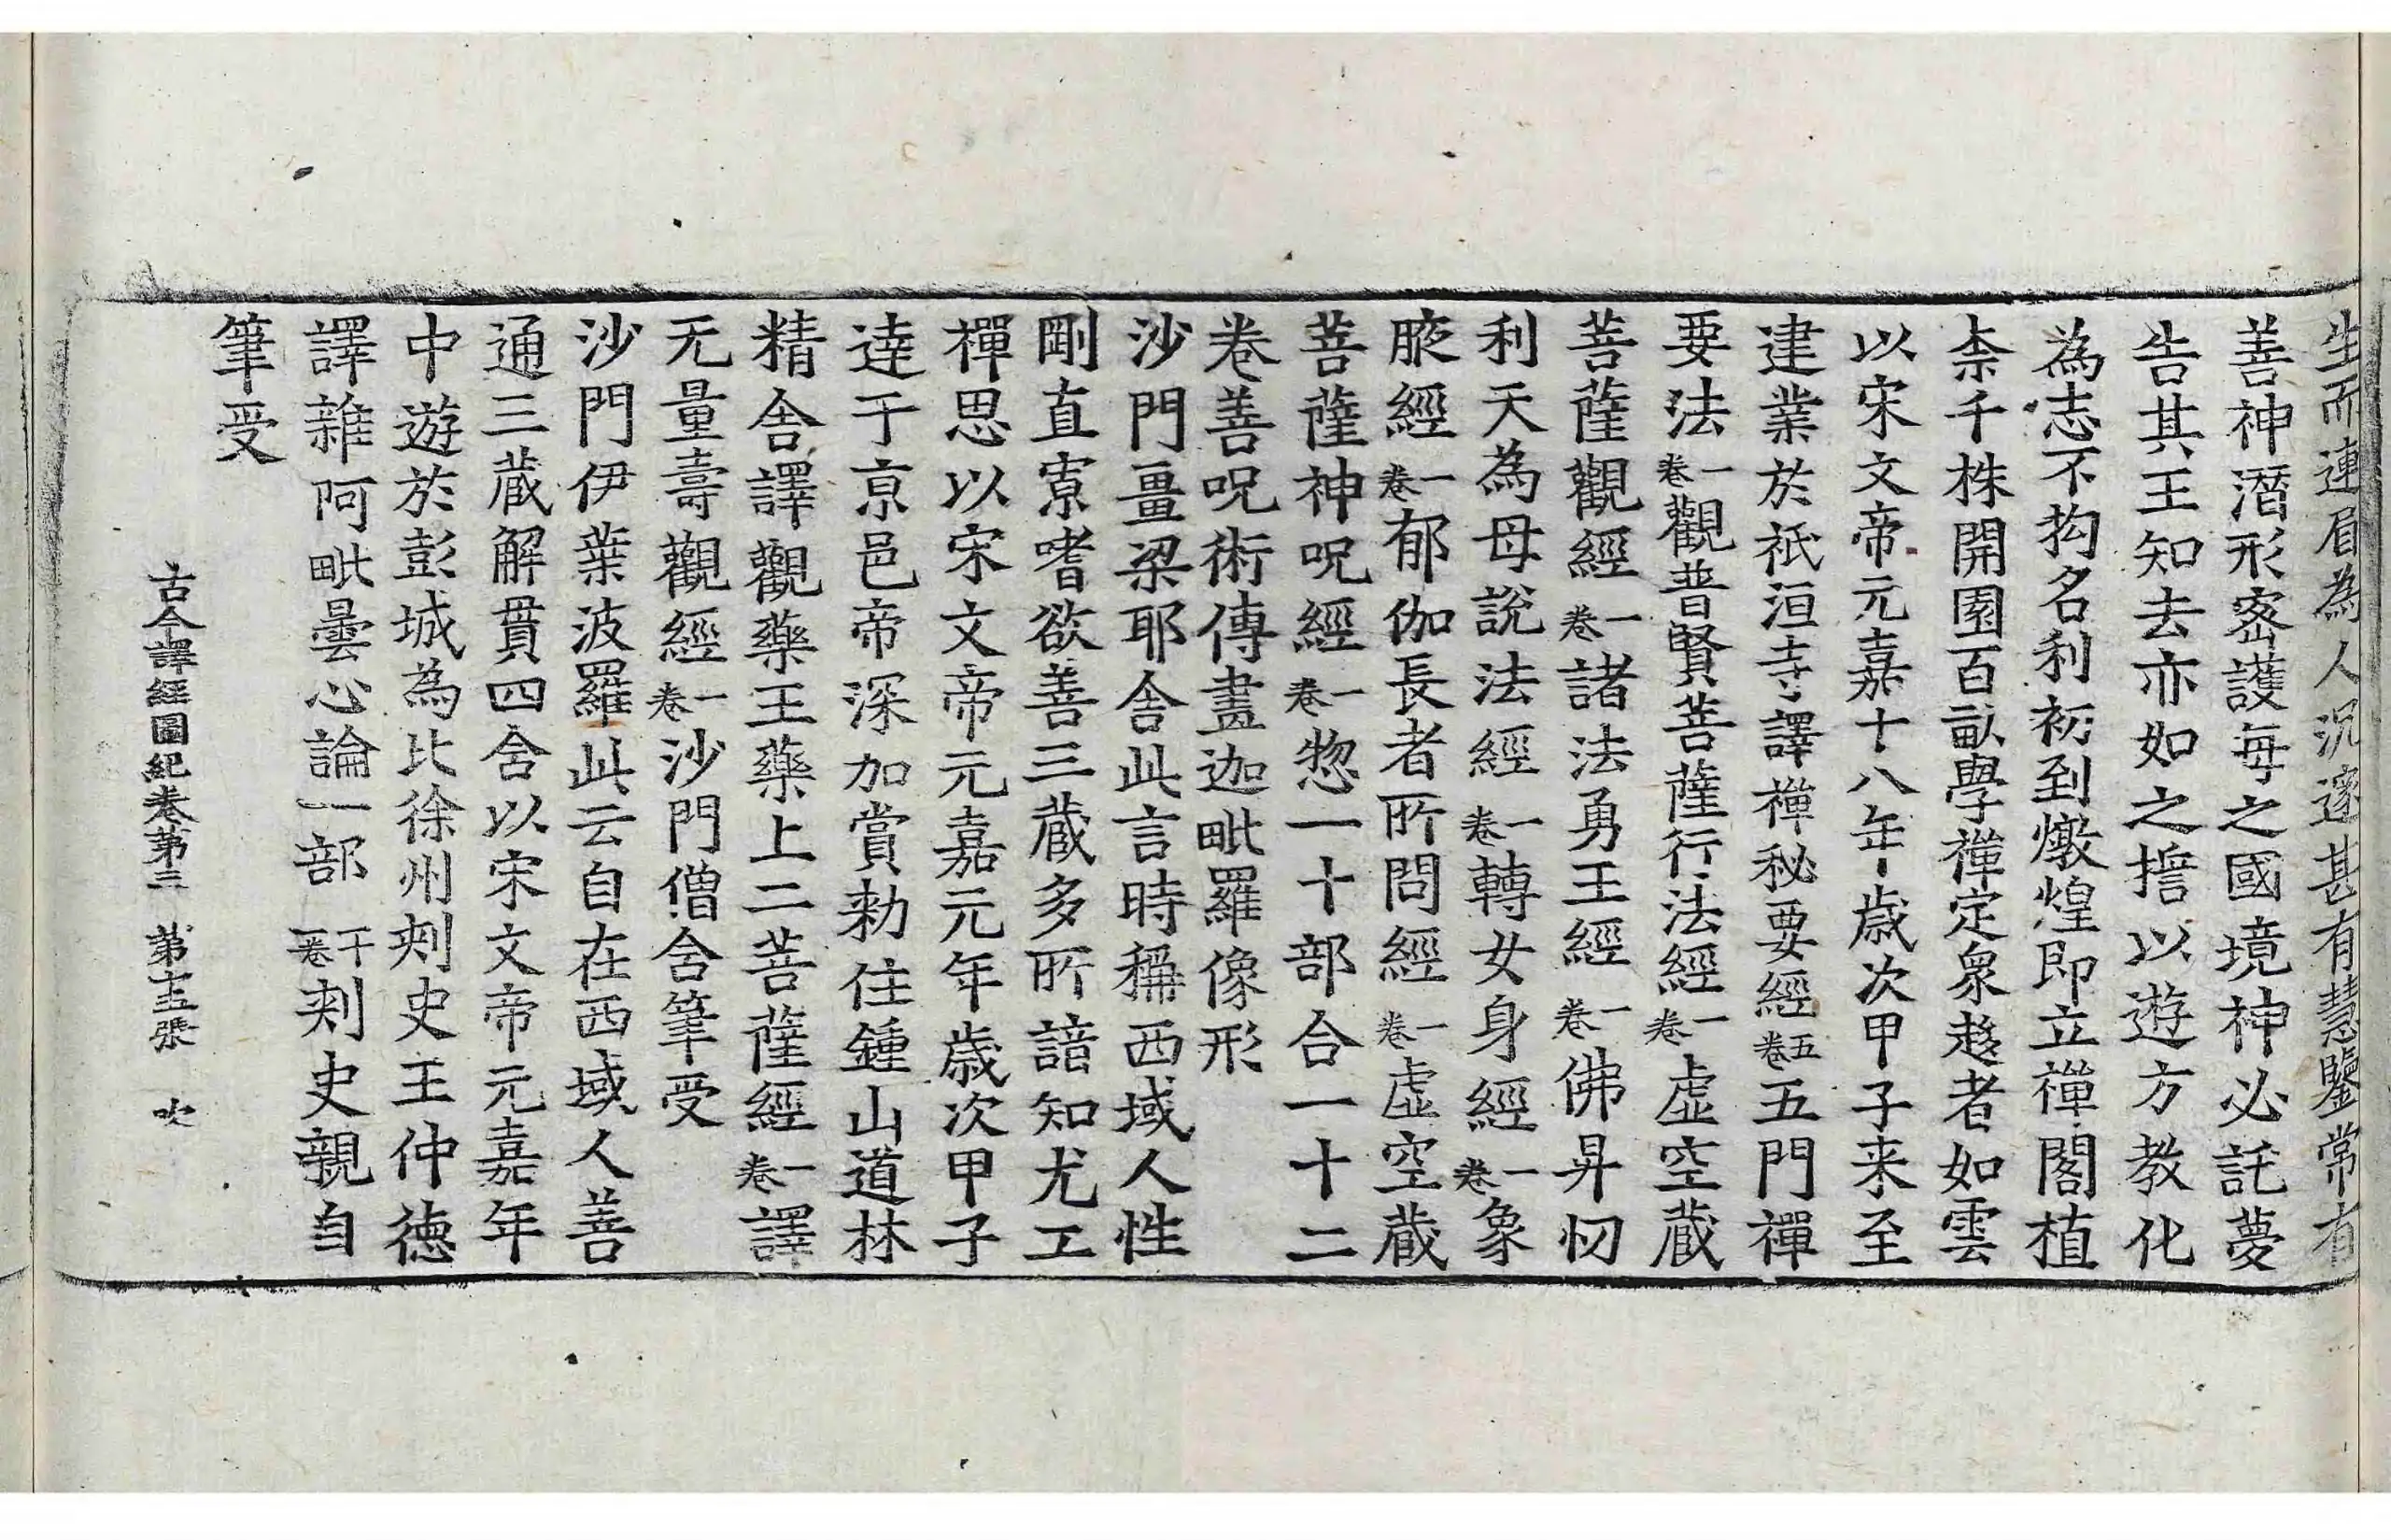 生而連眉為人沉邃甚有慧鑒常有
善神潛形密護每之國境神必託夢
告其王知去亦如之擔以遊方教化
為志不拘名利初到燉煌即立禪閣植
柰千株開園百畝學禪定衆趍者如雲
以宋文帝元嘉十八年歲次甲子来至
建業於祇洹寺譯禪秘要經五卷五門禪
要法一卷觀普賢菩薩行法經一卷虛空藏
菩薩觀經一卷諸法勇王經一卷佛昇忉
利天為母說法經一卷轉女身經一卷象
腋經一卷郁伽長者所問經一卷虛空藏
菩薩神呪經一卷惣一十部合一十二
卷善呪術傳畫迦毗羅像形
沙門畺梁耶舍此言時稱西域人性
剛直寡嗜欲善三藏多所諳知尤工
禪思以宋文帝元嘉元年歲次甲子
達于京邑帝深加賞勑住鍾山道林
精舍譯觀藥王藥上二菩薩經一卷譯
无量壽觀經一卷沙門僧含筆受
沙門伊葉波羅此云自在西域人善
通三藏解貫四含以宋文帝元嘉年
中遊於彭城為比徐州刾史王仲德
譯雜阿毗曇心論一部十一卷刾史親自
筆受
古今譯經圖紀卷第三 第十五張